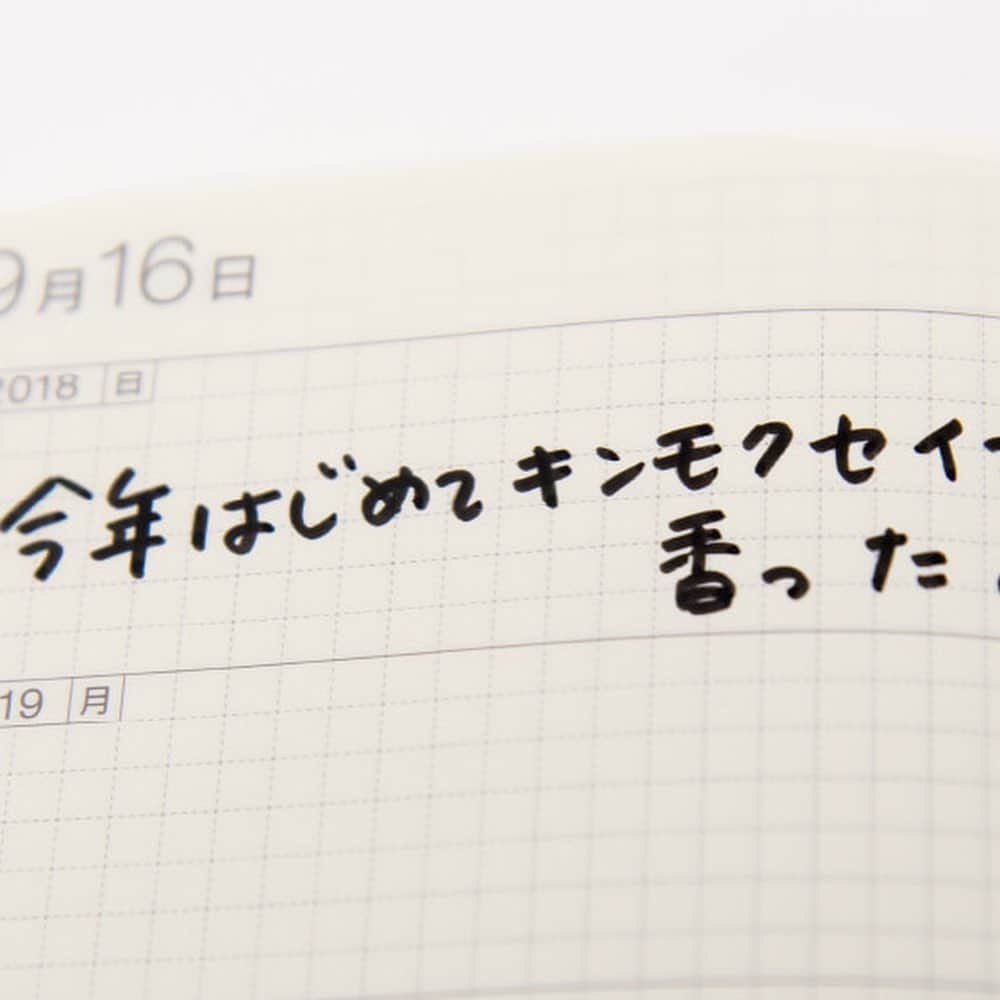 9月16日
2018 日
今年はじめてキンモクセイ
香った
19 月